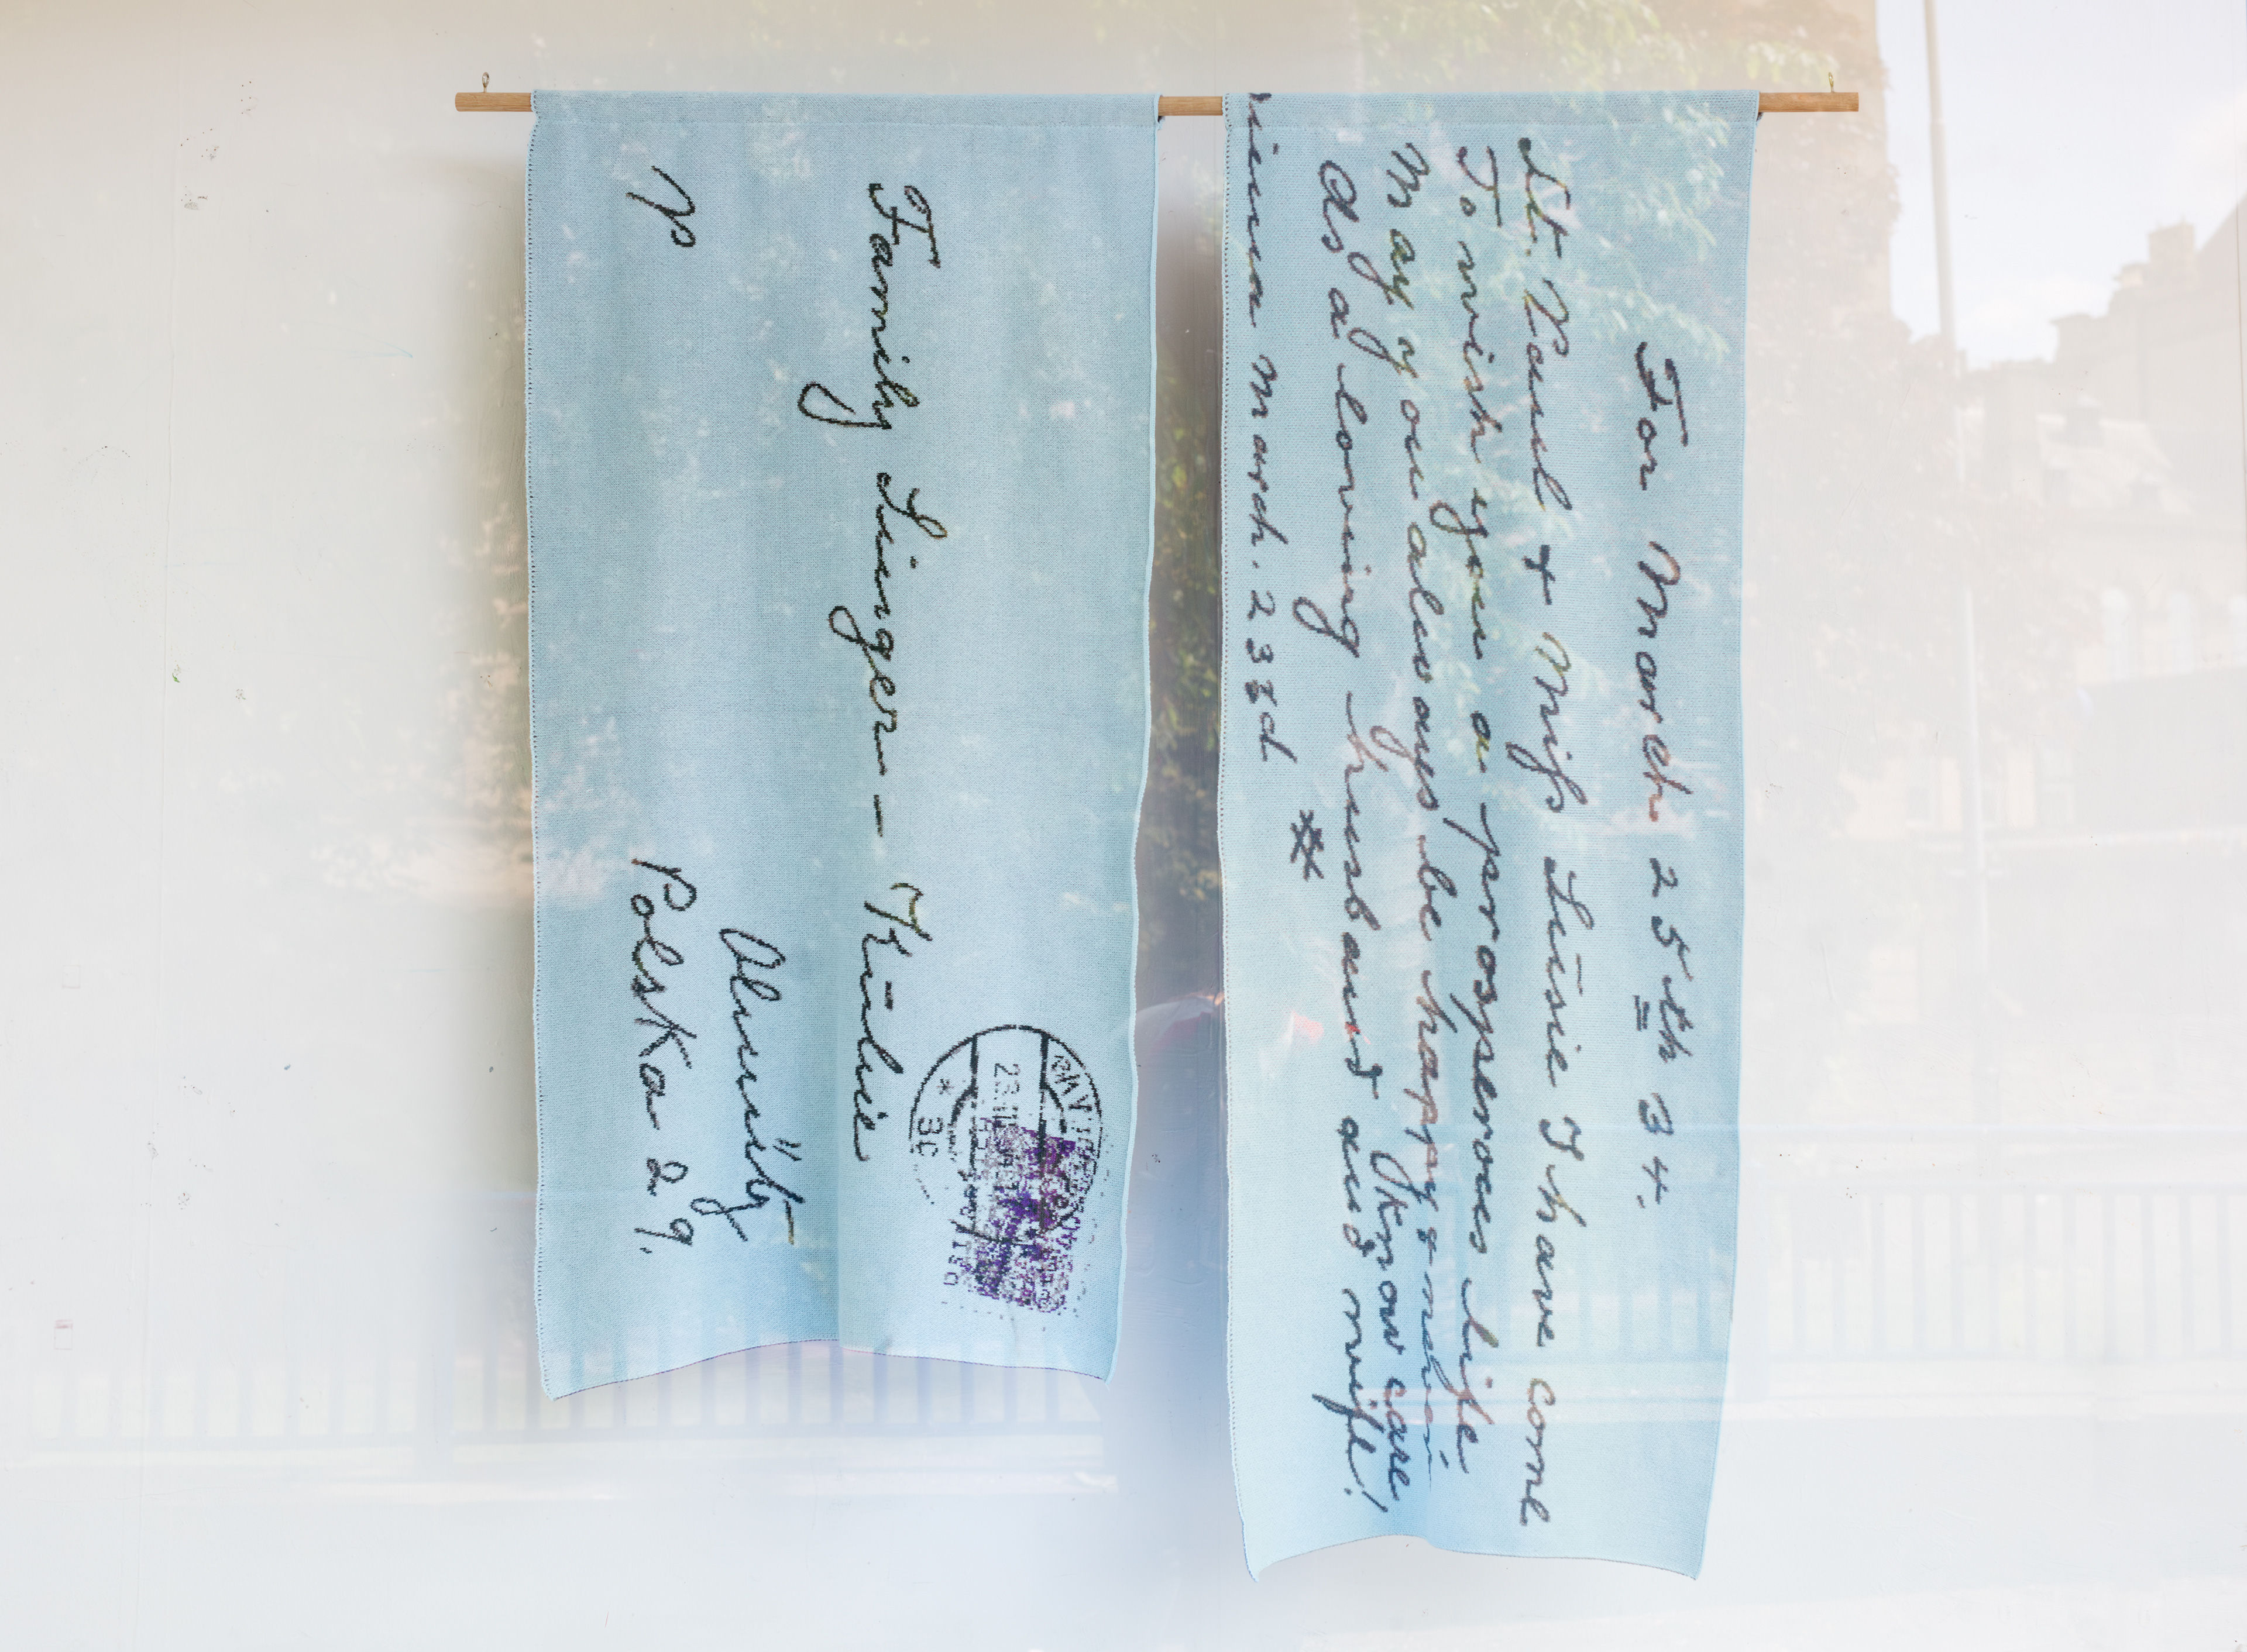 Family Singer – Kühie
Olmütz
Polska 29.
P
23.II
3c
For March 25th 34.
St. Paul & Miss Süsie I have come
To wish you a prosperoes life
May you always be happy &
Know care
As a loving husband and wife!
March. 233d